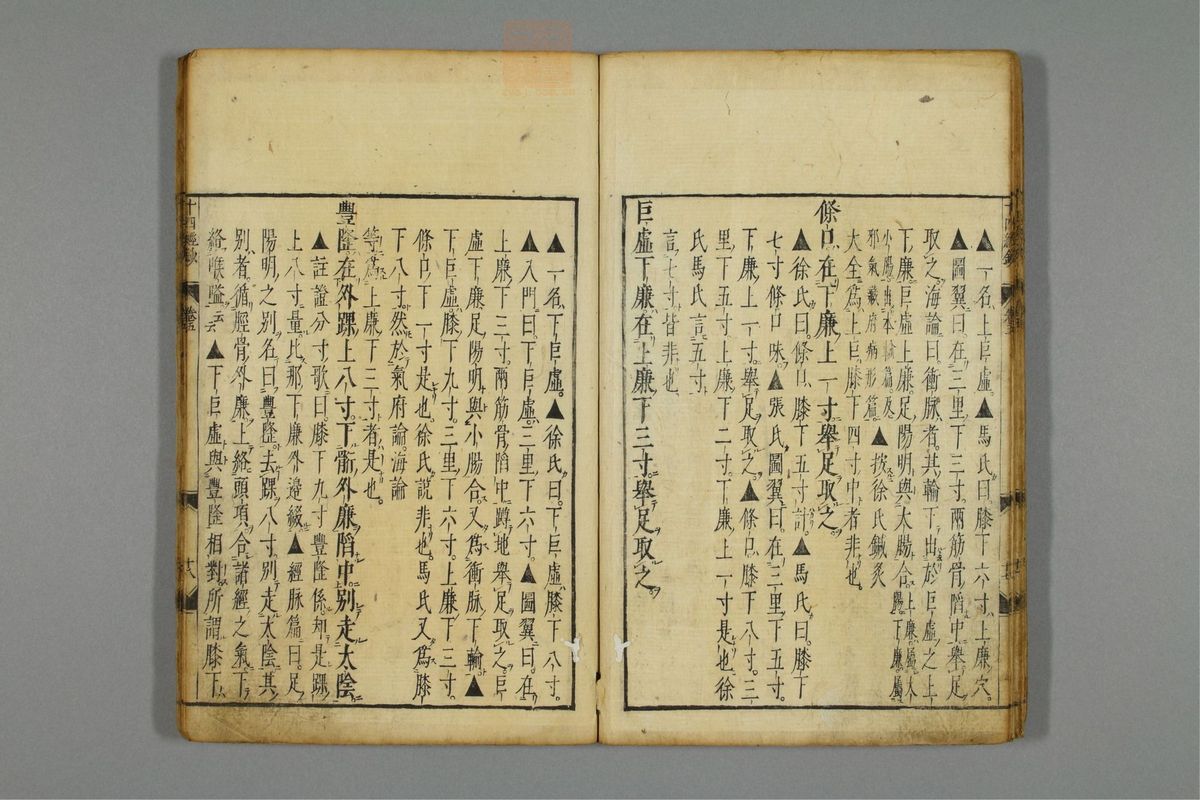 ▲一名上巨虛▲馬氏曰膝下六寸上廉穴
▲圖翼曰在三里下三寸兩筋骨陷中舉足
取之海論曰衝脉者其輸下出於巨虛之上
下廉巨虛上廉足陽明與大腸合上廉屬大腸下廉屬
小腸出本輸篇及邪氣藏府病形篇▲按徐氏鍼灸
大全爲上巨膝下四寸中者非也
條口在下廉上一寸舉足取之
▲徐氏曰條口膝下五寸計▲馬氏曰膝下
七寸條口味▲張氏圖翼曰在三里下五寸
下廉上一寸舉足取之▲條口膝下八寸三
里下五寸上廉下二寸下廉上一寸是也徐
氏馬氏言五寸
言七寸皆非也
巨虛下廉在上廉下三寸舉足取之
▲一名下巨虛▲徐氏曰下巨虛膝下八寸
▲入門曰下巨虛三里下六寸▲圖翼曰在
上廉下三寸兩筋骨陷中蹲地舉足取之巨
虛下廉足陽明與小腸合又爲衝脉下輸▲
下巨虛膝下九寸三里下六寸上廉下三寸
條口下一寸是也徐氏說非也馬氏又爲膝
下八寸然於氣府論海論
等爲上廉下三寸者是也
豐隆在外踝上八寸下䯒外廉陷中別走太陰
▲註證分寸歌曰膝下九寸豐隆係却是踝
上八寸量比那下廉外邊綴▲經脉篇曰足
陽明之別名曰豐隆去踝八寸別走太陰其
別者循脛骨外廉上絡頭項合諸經之氣下
絡喉嗌云云▲下巨虛與豐隆相對所謂膝下